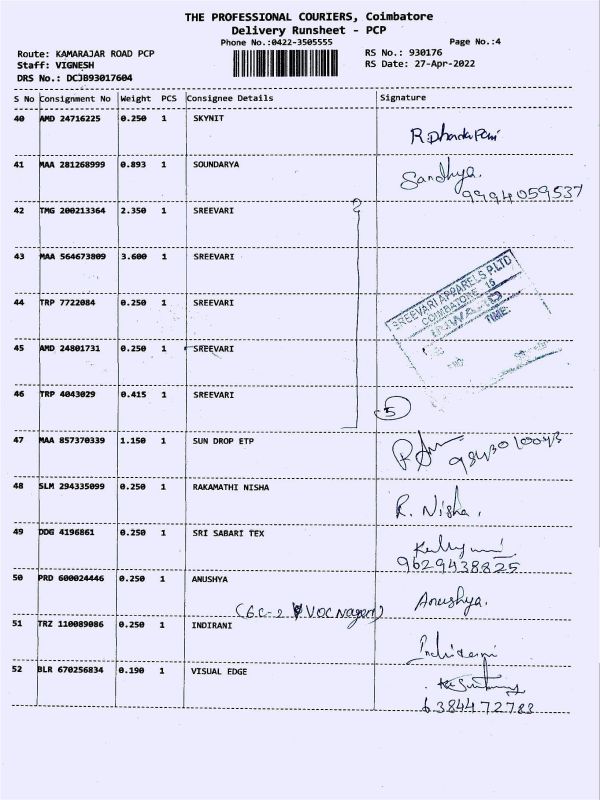 THE PROFESSIONAL COURIERS, Coimbatore
Delivery Runsheet - PCP
Phone No.:0422-3505555
Page No.:4
Route: KAMARAJAR ROAD PCP
RS No.: 930176
Staff: VIGNESH
RS Date: 27-Apr-2022
DRS No.: DCJB93017604
S No Consignment No Weight PCS Consignee Details Signature
40 AMD 24716225 0.250 1 SKYNIT
41 MAA 281268999 0.893 1 SOUNDARYA Sandhya.
9994059537
42 TMG 200213364 2.350 1 SREEVARI
43 MAA 564673809 3.600 1 SREEVARI
SREEVARI APPARELS P.LTD
COIMBATORE 15
INWARD
TIME:
44 TRP 7722084 0.250 1 SREEVARI
45 AMD 24801731 0.250 1 SREEVARI
46 TRP 4043029 0.415 1 SREEVARI
5
47 MAA 857370339 1.150 1 SUN DROP ETP
9843010043
48 SLM 294335099 0.250 1 RAKAMATHI NISHA R. Nisha.
49 DDG 4196861 0.250 1 SRI SABARI TEX
9629438825
50 PRD 600024446 0.250 1 ANUSHYA Anushya.
(GC-2 VOC Nagar)
51 TRZ 110089086 0.250 1 INDIRANI
52 BLR 670256834 0.190 1 VISUAL EDGE
6384472783